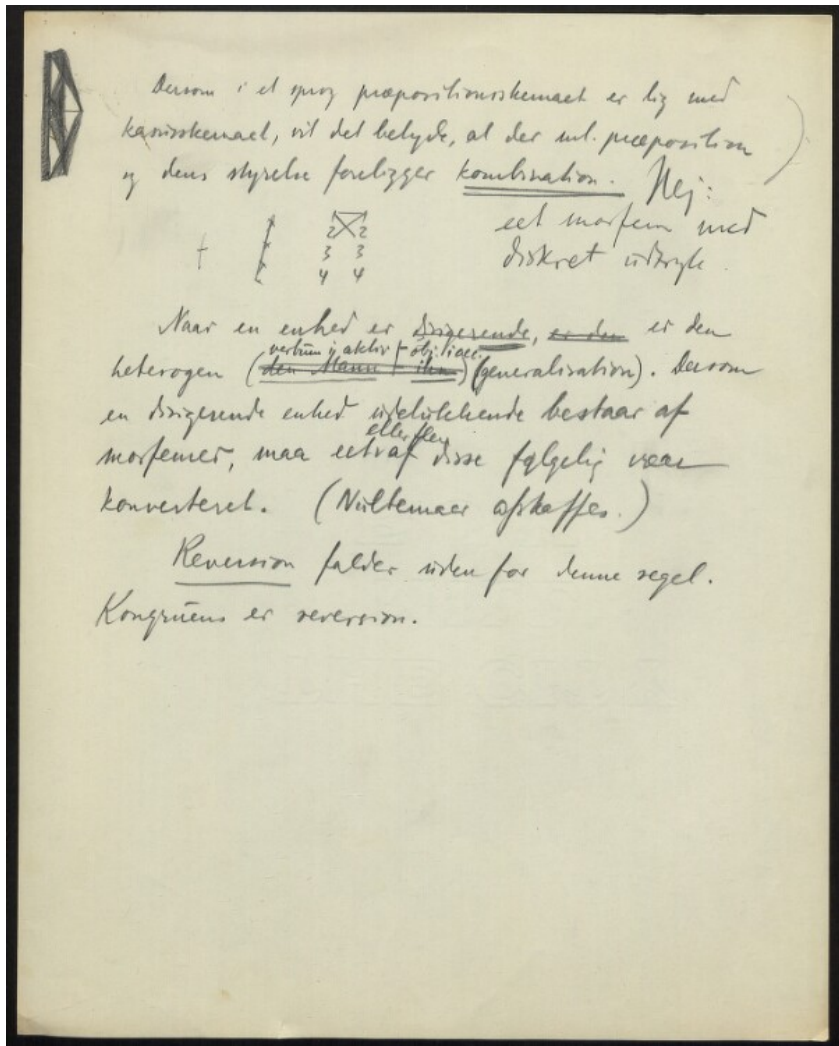 Dersom i et sprog præpositionsskemaet er lig med
kasusskemaet, vil det betyde, at der ml. præposition
og dens styrelse foreligger kombination. Nej:
eet morfem med
diskret udtryk.
2 2
3 3
4 4
Naar en enhed er dirigerende, er den er den
verbum i aktiv + obj.
heterogen (den Mann + ihn) (generalisation). Dersom
en dirigerende enhed udelukkende bestaar af
eller flere
morfemer, maa eet af disse følgelig være
konverteret. (Nultemaer afskaffes.)
Reversion falder uden for denne regel.
Kongruens er reversion.